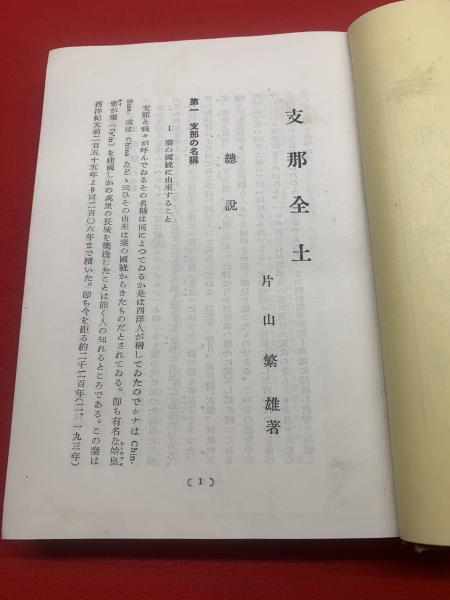 支那全土
片山繁雄著
總説
第一 支那の名稱
1 秦の國號に由來すること
支那と我々が呼んでゐるその名稱は何によつてゐるか是は西洋人が稱してゐたのでシナは Chin.
Sina. 或は China などゝ云ひその由來は秦の國號からきたものだとされてゐる。卽ち有名な始皇
帝が秦(Ts'in)を建國しかの萬里の長城を築造したことは能く人の知れるところである。この秦は
西洋紀元前二百五十五年より同二百〇六年まで續いた。卽ち今を距る約二千二百年(二、一九三年)
(1)